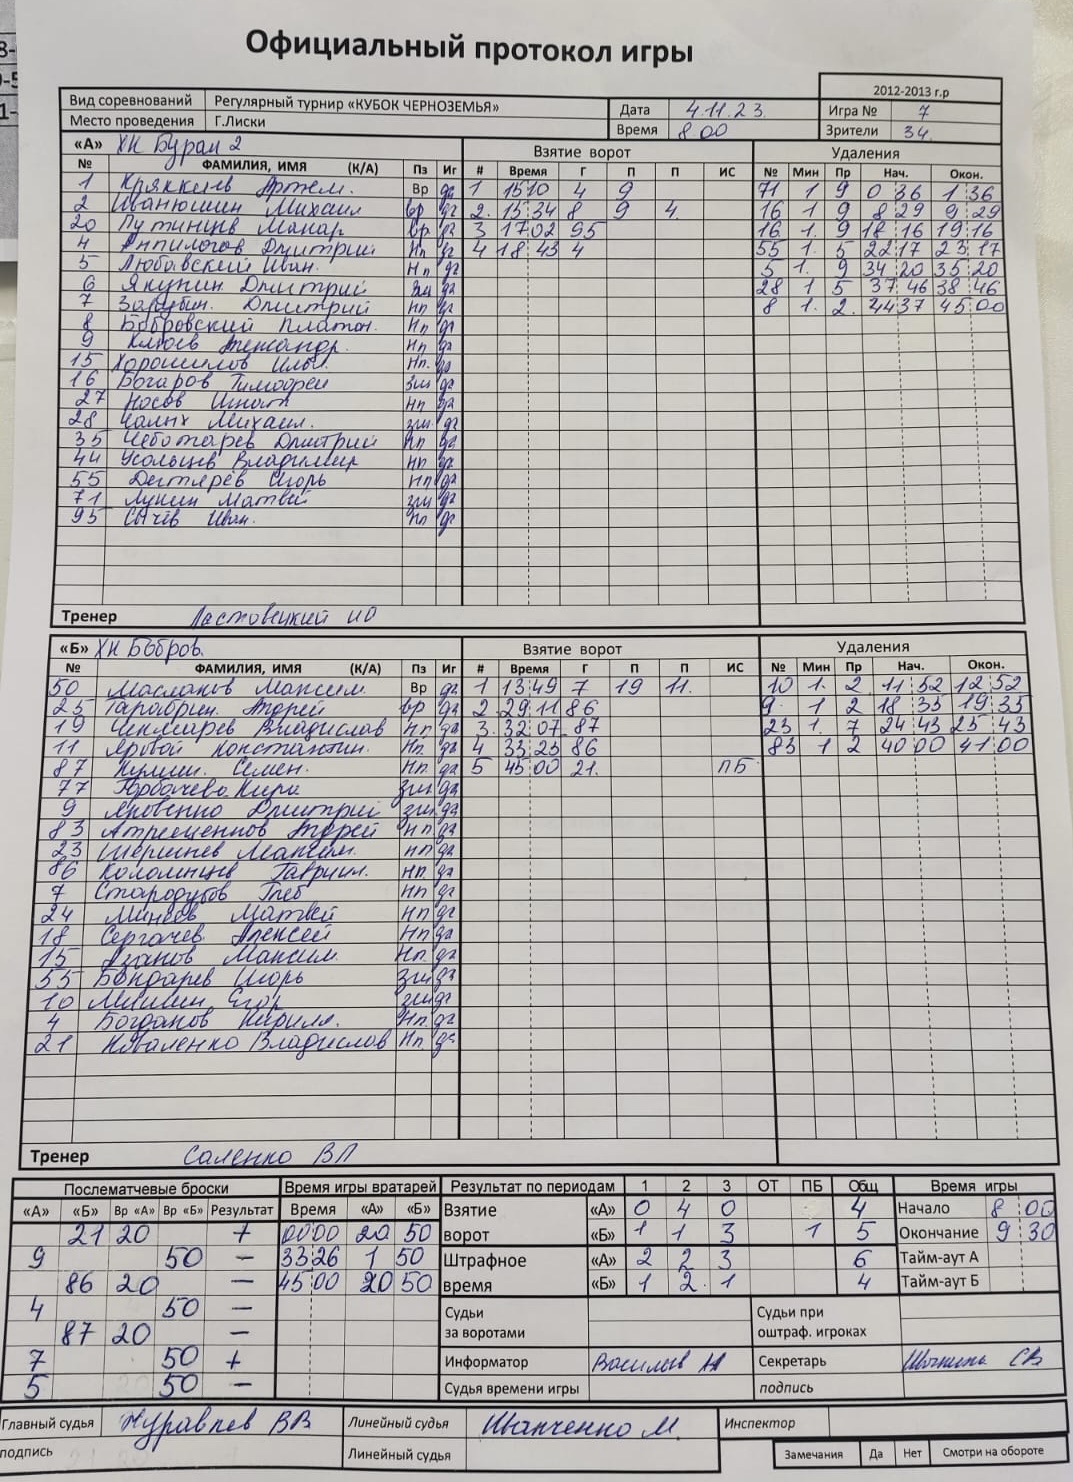 Официальный протокол игры
2012-2013 г.р
Вид соревнований Регулярный турнир «КУБОК ЧЕРНОЗЕМЬЯ» Дата 4.11.23. Игра № 7
Место проведения Г.Лиски Время 8 00 Зрители 34.
«А» ХК Буран 2 Взятие ворот Удаления
№ ФАМИЛИЯ, ИМЯ (К/А) Пз Иг # Время Г П П ИС № Мин Пр Нач. Окон.
1 Артем. Вр да 1 15 10 4 9 71 1 9 0 36 1 36
2 Иванюшин Михаил вр да 2. 15 34 8 9 4. 16 1. 9 8 29 9 29
20 Путинцев Макар вр да 3 17 02 95 16 1. 9 18 16 19 16
4 Анпилогов Дмитрий Нп да 4 18 43 4 55 1. 5 22 17 23 17
5 Любавский Иван. Нп да 5 1. 9 34 20 35 20
6 Якунин Дмитрий зщ да 28 1 5 37 46 38 46
7 Зарубин. Дмитрий Нп да 8 1 2. 44 37 45 00
8 Бобровский Платон. Нп да
9 Клюев Александр. Нп да
15 Хорошилов Илья. Нп. да
16 Богаров Тимофей зщ да
27 Носов Игнат Нп да
28 Чалых Михаил. зщ. да
35 Чеботарев Дмитрий Нп да
44 Усольцев Владимир Нп да
55 Дегтярев Игорь Нп да
71 Лукин Матвей зщ да
95 Сычёв Иван. Нп да
Тренер Ластовецкий ИО
«Б» ХК Бобров. Взятие ворот Удаления
№ ФАМИЛИЯ, ИМЯ (К/А) Пз Иг # Время Г П П ИС № Мин Пр Нач. Окон.
50 Масланов Максим. Вр да 1 13 49 7 19 11. 10 1. 2. 11 52 12 52
25 Тарабрин. Андрей вр да 2 29 11 86 9. 1 2 18 35 19 35
19 Чекмарев Владислав Нп да 3. 32 07 87 23 1. 7 24 43 25 43
11 Яровой Константин. Нп. да 4 33 23 86 83 1 2 40 00 41 00
87 Семен. Нп. да 5 45 00 21. ПБ
77 Горбачева Кира зщ да
9 Яковенко Дмитрий зщ да
83 Андрей Нп да
23 Шершнев Максим. Нп да
86 Коломицев Гавриил. Нп. да
7 Стародубов Глеб Нп да
24 Минаев Матвей Нп да
18 Сергачев Алексей Нп да
15 Азанов Максим. Нп. да
55 Бондарев Игорь зщ да
10 Егор зщ да
4 Богданов Кирилл. Нп. да
21 Коваленко Владислав Нп. да
Тренер Саленко ВЛ
Послематчевые броски Время игры вратарей Результат по периодам 1 2 3 ОТ ПБ Общ Время игры
«А» «Б» Вр «А» Вр «Б» Результат Время «А» «Б» Взятие «А» 0 4 0 4 Начало 8 00
21 20 + 00 00 20 50 ворот «Б» 1 1 3 1 5 Окончание 9 30
9 50 − 33 26 1 50 Штрафное «А» 2 2 3 6 Тайм-аут А
86 20 − 45 00 20 50 время «Б» 1 2. 1 4 Тайм-аут Б
4 50 − Судьи Судьи при
87 20 − за воротами оштраф. игроках
7 50 + Информатор Васильев Секретарь СВ
5 50 − Судья времени игры подпись
Главный судья Журавлев ВВ Линейный судья Иванченко М. Инспектор
подпись Линейный судья Замечания Да Нет Смотри на обороте